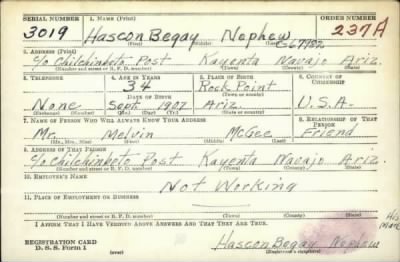 SERIAL NUMBER 1. NAME (Print) ORDER NUMBER
3019 Hascon Begay Nephew 237A
(First) (Middle) (Last)
2. ADDRESS (Print)
c/o Chilchinbeto Post Kayenta Navajo Ariz.
(Number and street or R. F. D. number) (Town) (County) (State)
3. TELEPHONE 4. AGE IN YEARS 5. PLACE OF BIRTH 6. COUNTRY OF CITIZENSHIP
34 Rock Point
DATE OF BIRTH (Town or county)
None Sept. 1907 Ariz. U.S.A.
(Exchange) (Number) (Mo.) (Day) (Yr.) (State or country)
7. NAME OF PERSON WHO WILL ALWAYS KNOW YOUR ADDRESS 8. RELATIONSHIP OF THAT PERSON
Mr. Melvin McGee Friend
(Mr., Mrs., Miss) (First) (Middle) (Last)
9. ADDRESS OF THAT PERSON
c/o Chilchinbeto Post Kayenta Navajo Ariz.
(Number and street or R. F. D. number) (Town) (County) (State)
10. EMPLOYER'S NAME
Not Working
11. PLACE OF EMPLOYMENT OR BUSINESS
(Number and street or R. F. D. number) (Town) (County) (State)
I AFFIRM THAT I HAVE VERIFIED ABOVE ANSWERS AND THAT THEY ARE TRUE.
His Mark
REGISTRATION CARD
D. S. S. Form 1 (over) Hascon Begay Nephew
(Registrant's signature)